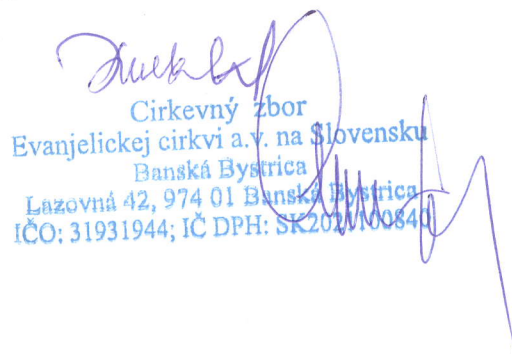 Cirkevný zbor
Evanjelickej cirkvi a.v. na Slovensku
Banská Bystrica
Lazovná 42, 974 01 Banská Bystrica
IČO: 31931944; IČ DPH: SK2021100840